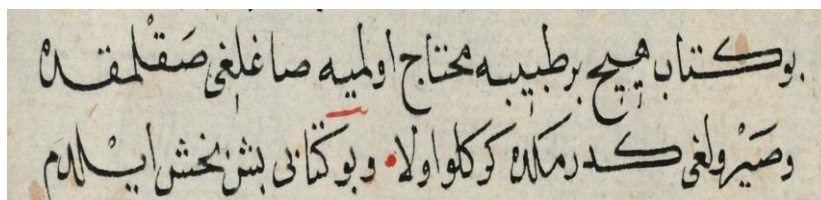 بو كتاب هيچ بر طبيبه محتاج اولميه صاغلغى صَقْلمقده
وصَيْرولغى كدرمكده كوكلو اولا • وبو كتابى بش بخش ايْلدم